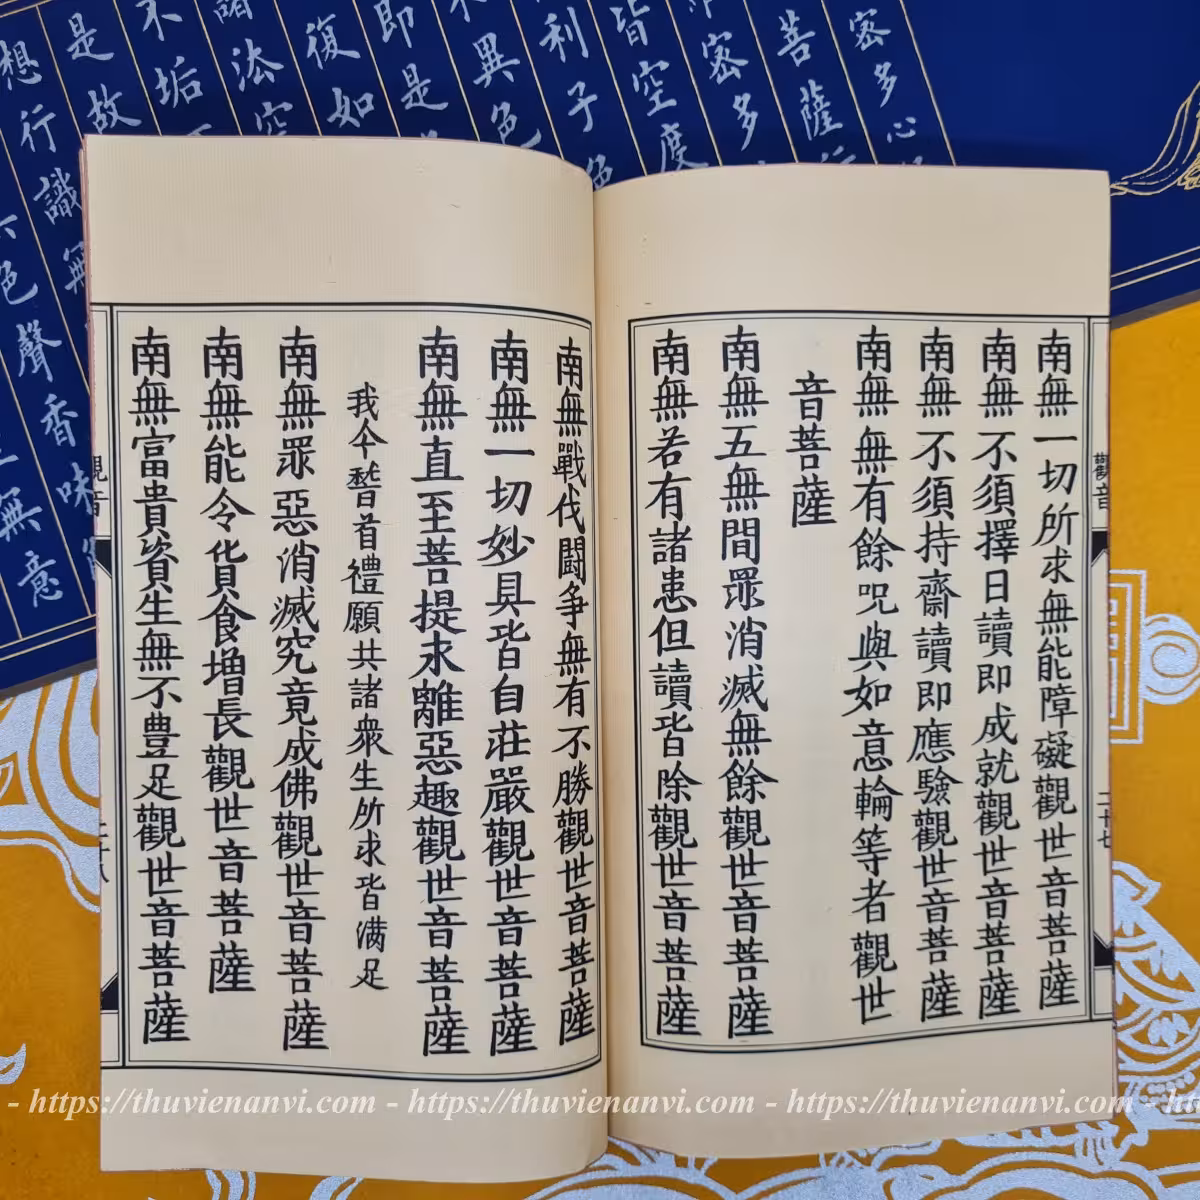 觀音
二十七
南無一切所求無能障礙觀世音菩薩
南無不須擇日讀即成就觀世音菩薩
南無不須持齋讀即應驗觀世音菩薩
南無無有餘呪與如意輪等者觀世
音菩薩
南無五無間眾消滅無餘觀世音菩薩
南無若有諸患但讀皆除觀世音菩薩
南無戰伐鬪争無有不勝觀世音菩薩
南無一切妙具皆自莊嚴觀世音菩薩
南無直至菩提永離惡趣觀世音菩薩
我今稽首禮願共諸衆生所求皆滿足
南無眾惡消滅究竟成佛觀世音菩薩
南無能令貨食増長觀世音菩薩
南無富貴資生無不豊足觀世音菩薩
密多心
菩薩行
密多
皆空度
利子色
異色
即是
復如
諸法空
不垢
是故
想行識無
色聲香味
無意
- https://thuvienanvi.com - https://thuvienanvi.com - https://thuvienanvi.com - ht